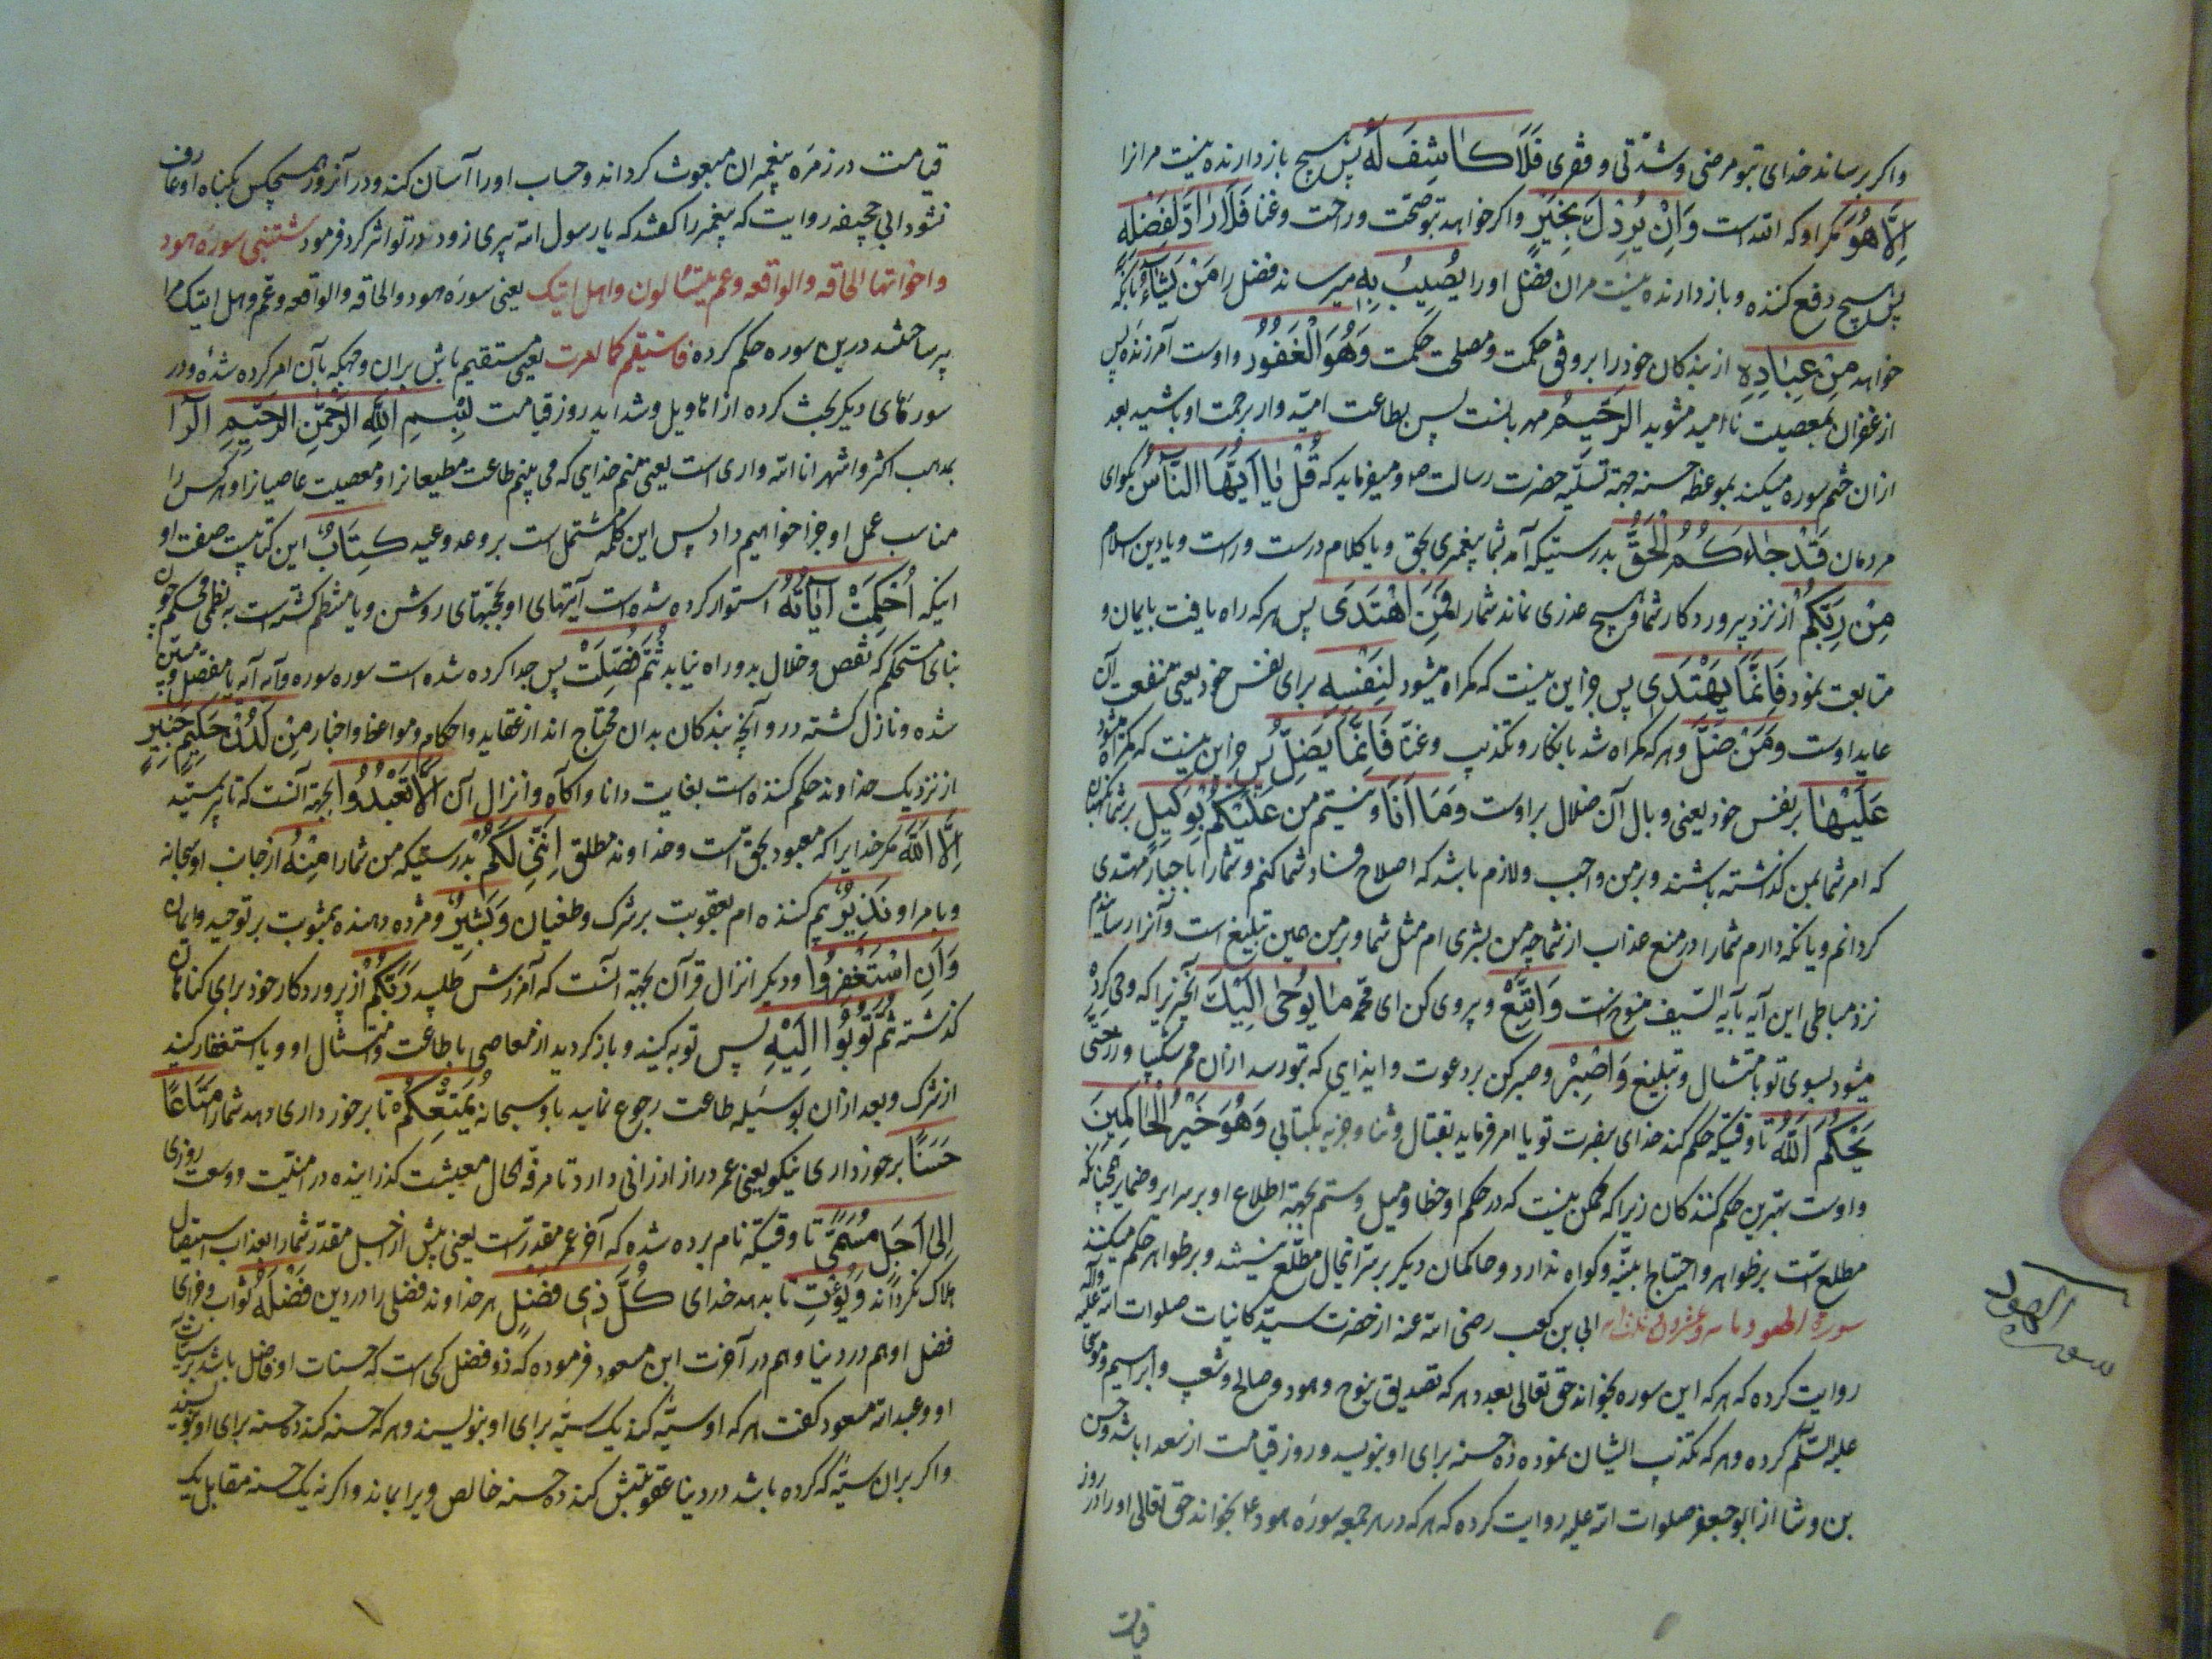 واکر برساند خدای بتو مرضی و شدتی و فقری فَلَا کَاشِفَ لَهُ پس هیچ باز دارنده نیست مر انرا
اِلَّا هُوَ مکر او که الله است وَاِنْ یُرِدْكَ بِخَیْرٍ و اکر خواهد بتو صحّت و راحت و غنا فَلَا رَادَّ لِفَضْلِهِ
پس هیچ دفع کننده و باز دارنده نیست مر ان فضل او را یُصِیبُ بِهِ میرساند فضل را مَنْ یَشَاءُ بانکه
خواهد مِنْ عِبَادِهِ از بندکان خود را بر وفق حکمت و مصلحت حکمت وَهُوَ الْغَفُورُ و اوست آمرزنده پس
از غفران بمعصیت ناامید مشوید الرَّحِیمُ مهربانست پس بطاعت امیدوار برحمت او باشید بعد
ازان ختم سوره میکند بموعظه حسنه جهة تسلیه حضرت رسالت ص و میفرماید که قُلْ یَا اَیُّهَا النَّاسُ بکو ای
مردمان قَدْ جَاءَکُمُ الْحَقُّ بدرستیکه آمد بشما پیغمبری بحق و یا کلام درست و راست و یا دین اسلام
مِنْ رَبِّکُمْ از نزد پروردکار شما و هیچ عذری نماند شما را فَمَنِ اهْتَدَی پس هر که راه یافت بایمان و
متابعت نمود فَاِنَّمَا یَهْتَدِی پس جز این نیست که راه میشود لِنَفْسِهِ برای نفس خود یعنی منفعت آن
عاید اوست وَمَنْ ضَلَّ و هر که کمراه شد بانکار و تکذیب و عناد فَاِنَّمَا یَضِلُّ پس جز این نیست که کمراه میشود
عَلَیْهَا بر نفس خود یعنی وبال آن ضلال بر اوست وَمَا اَنَا و نیستم من عَلَیْکُمْ بِوَکِیلٍ بر شما نکهبان
که امر شما بمن کذاشته باشند و بر من واجب و لازم باشد که اصلاح فساد شما کنم و شما را باجبار مهتدی
کردانم و یا نکه دارم شما را در منع عذاب از شما چه من بشری ام مثل شما و بر من همین تبلیغ است و آنرا رسانیدم
نزد بعضی این آیه بآیه السیف منسوخست وَاتَّبِعْ و پیروی کن ای محمد مَا یُوحَی اِلَیْكَ آنچیزیرا که وحی کرده
میشود بسوی تو بامتثال و تبلیغ وَاصْبِرْ و صبر کن بر دعوت و ایذای که بتو رسد ازان ممر شکیبا ورز حَتَّی
یَحْکُمَ اللّٰهُ تا وقتیکه حکم کند خدای بنصرت تو یا امر فرماید بقتال و جزیه بکتابی وَهُوَ خَیْرُ الْحَاکِمِینَ
و اوست بهترین حکم کنندکان زیرا که ممکن نیست که در حکم او خطا و میل و ستم بجهة اطلاع او بر سرایر و ضمایر همچنانکه
مطلع است بر ظواهر و احتیاج ببینه و کواه ندارد و حاکمان دیکر بر سرّ انحال مطلع نیستند و بر ظواهر حکم میکنند
سورة الهود ابی بن کعب رضی الله عنه از حضرت سید کاینات صلوات الله علیه وآله
روایت کرده که هر که این سوره بخواند حق تعالی بعدد هر که تصدیق بنوح و هود و صالح و شعیب و ابراهیم و موسی
علیه السّلم کرده و هر که تکذیب ایشان نموده ده حسنه برای او بنویسد و روز قیامت از سعدا باشد و حسن
بن وشا از ابو جعفر صلوات الله علیه روایت کرده که هر که در هر جمعه سورة هود ع بخواند حق تعالی او را در روز
قیامت
سورة الهود
قیامت در زمرۀ پیغمبران مبعوث کرداند و حساب او را آسان کند و در آنروز هیچکس بکناه او عارف
نشود ابی جحیفه روایت که پیغمبر را کفتند که یا رسول الله پیری زود در تو اثر کرد فرمود شیّبتنی سورة هود
و اخواتها الحاقه والواقعه وعم یتسالون وهل اتیك یعنی سورة هود و الحاقه والواقعه و عم وهل اتیك مرا
پیر ساختند درین سوره حکم کرده فاستقم کما امرت یعنی مستقیم باش بران وجهیکه بآن امر کرده شدۀ و در
سورتهای دیکر بحث کرده از اهاویل و شداید روز قیامت بِسْمِ اللّٰهِ الرَّحْمٰنِ الرَّحِیمِ الٓرٰ
بمذهب اکثر و اشهر انا الله اری است یعنی منم خدایی که می بینم طاعت مطیعانرا و معصیت عاصیانرا و هر کس را
مناسب عمل او جزا خواهیم داد پس این کلمه مشتمل است بر وعد و وعید کِتَابٌ این کتابیست صفت او
اینکه اُحْکِمَتْ آیَاتُهُ استوار کرده شده است آیتهای او بحجتهای روشن و یا منتظم کشته است به نظمی محکم چون
بنای مستحکم که نقص و خلال بدو راه نیابد ثُمَّ فُصِّلَتْ پس جدا کرده شده است سوره سوره و آیه آیه یا مفصل و مبین
شده و نازل کشته درو آنچه بندکان بدان محتاج اند از عقاید و احکام و مواعظ و اخبار مِنْ لَدُنْ حَکِیمٍ خَبِیرٍ
از نزدیک خداوند حکم کننده است بغایت دانا و آکاه و انزال آن اَلَّا تَعْبُدُوا بجهة آنست که تا نپرستید
اِلَّا اللّٰهَ مکر خدایرا که معبود بحق است و خداوند مطلق اِنَّنِی لَکُمْ بدرستیکه من شما را مِنْهُ از جانب او سبحانه
و بامر او نَذِیرٌ بیم کننده ام بعقوبت بر شرک و طغیان وَبَشِیرٌ و مژده دهنده بمثوبت بر توحید و ایمان
وَاَنِ اسْتَغْفِرُوا و دیکر انزال قرآن بجهة آنست که آمرزش طلبید رَبَّکُمْ از پروردکار خود برای کناهان
کذشته ثُمَّ تُوبُوا اِلَیْهِ پس توبه کنید و باز کردید از معاصی باطاعت و امتثال او و یا استغفار کنید
از شرک و بعد ازان بوسیله طاعت رجوع نمایید باو سبحانه یُمَتِّعْکُمْ تا برخورداری دهد شما را مَتَاعًا
حَسَنًا برخورداری نیکو یعنی عمر دراز ارزانی دارد تا مرفه الحال معیشت کذرانیده در امنیت و وسعت روزی
اِلَی اَجَلٍ مُسَمًّی تا وقتیکه نام برده شده که آخر عمر مقدرست یعنی پیش از اجل مقدر شما را بعذاب استیصال
هلاک نکرداند وَیُؤْتِ تا بدهد خدای کُلَّ ذِی فَضْلٍ هر خداوند فضلی را در دین فَضْلَهُ ثواب و جزای
فضل او هم در دنیا و هم در آخرت ابن مسعود فرموده که ذو فضل کسی است که حسنات او فاضل باشد بر سیئات
او و عبدالله مسعود کفت هر که او سیّئه کند یک سیّئه برای او بنویسند و هر که حسنه کند ده حسنه برای او بنویسند
و اکر بران سیّئه که کرده باشد در دنیا عقوبتش کند ده حسنه خالص ویرا بماند و اکر نه یک حسنه مقابل یک